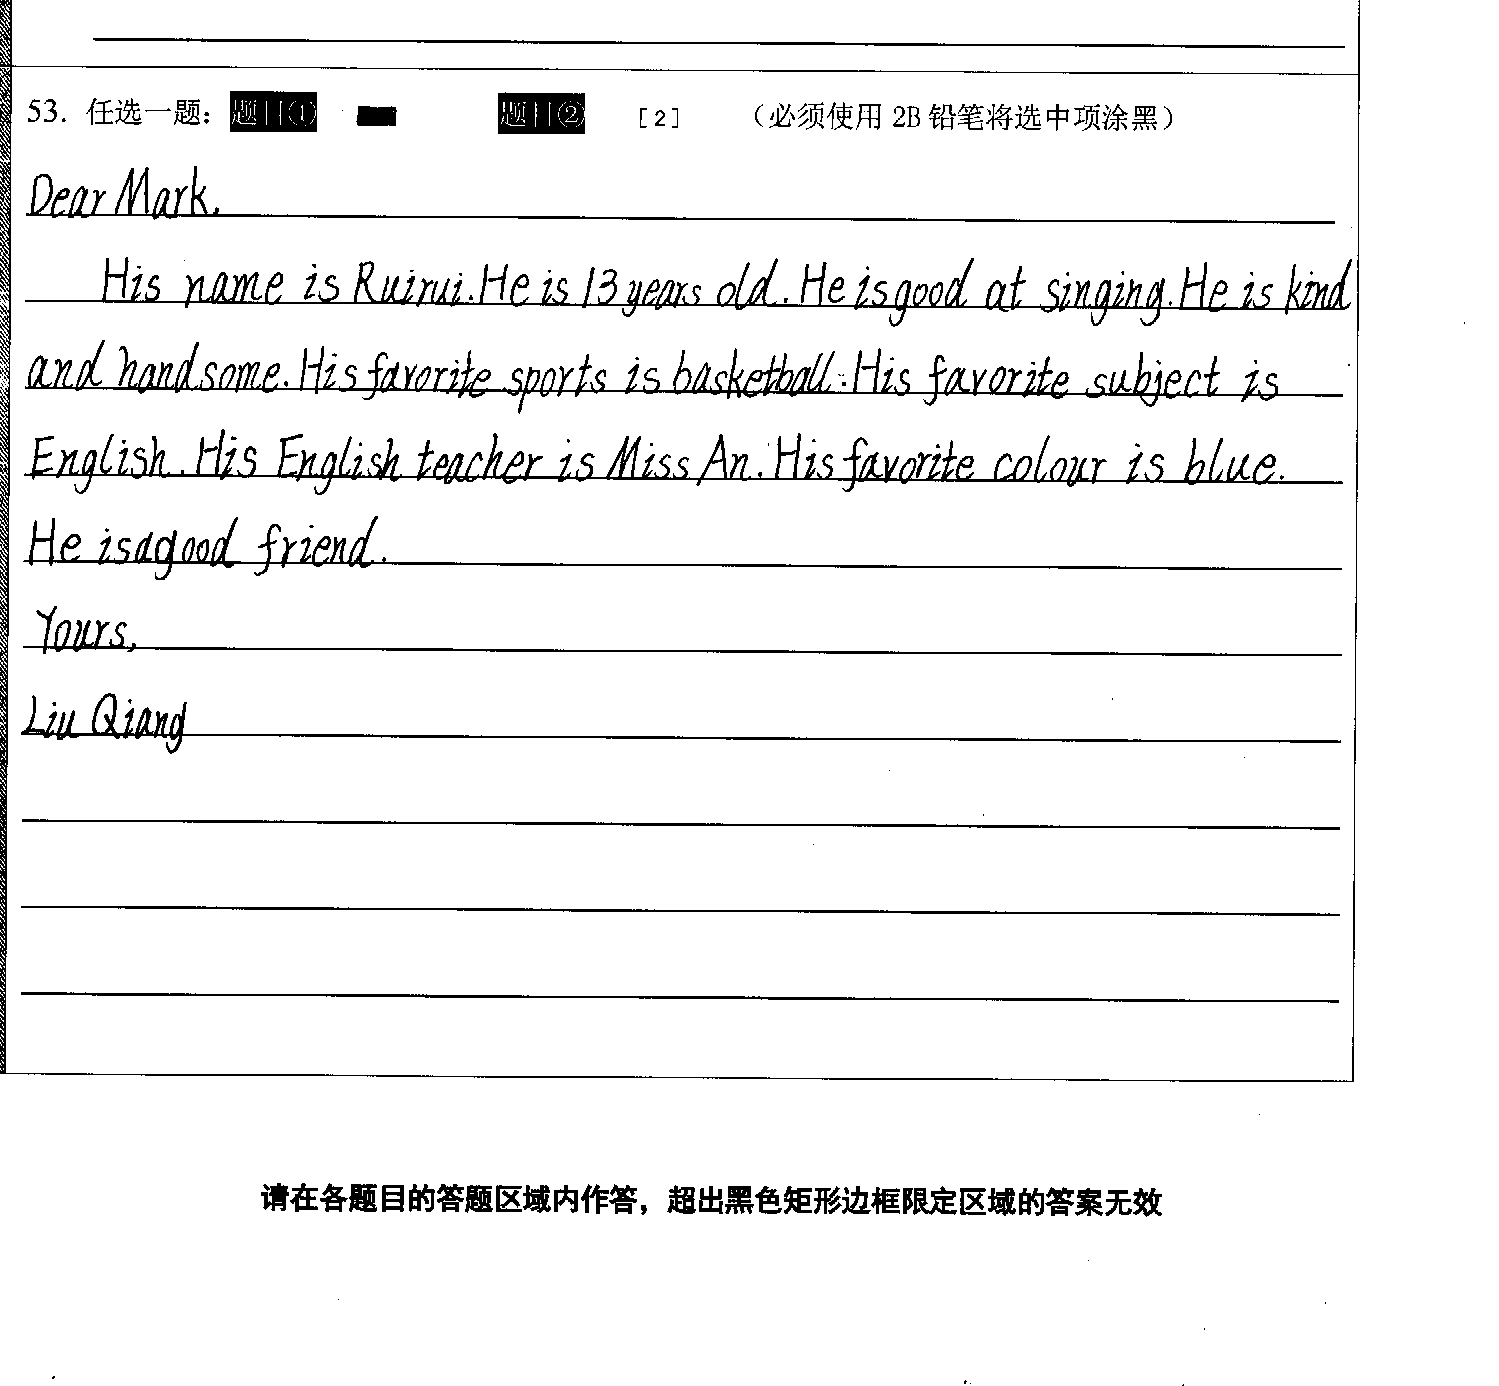 53. 任选一题： 题目① 题目② [2] （必须使用 2B 铅笔将选中项涂黑）
Dear Mark,
His name is Ruirui. He is 13 years old. He is good at singing. He is kind
and handsome. His favorite sports is basketball. His favorite subject is
English. His English teacher is Miss An. His favorite colour is blue.
He is a good friend.
Yours,
Liu Qiang
请在各题目的答题区域内作答，超出黑色矩形边框限定区域的答案无效